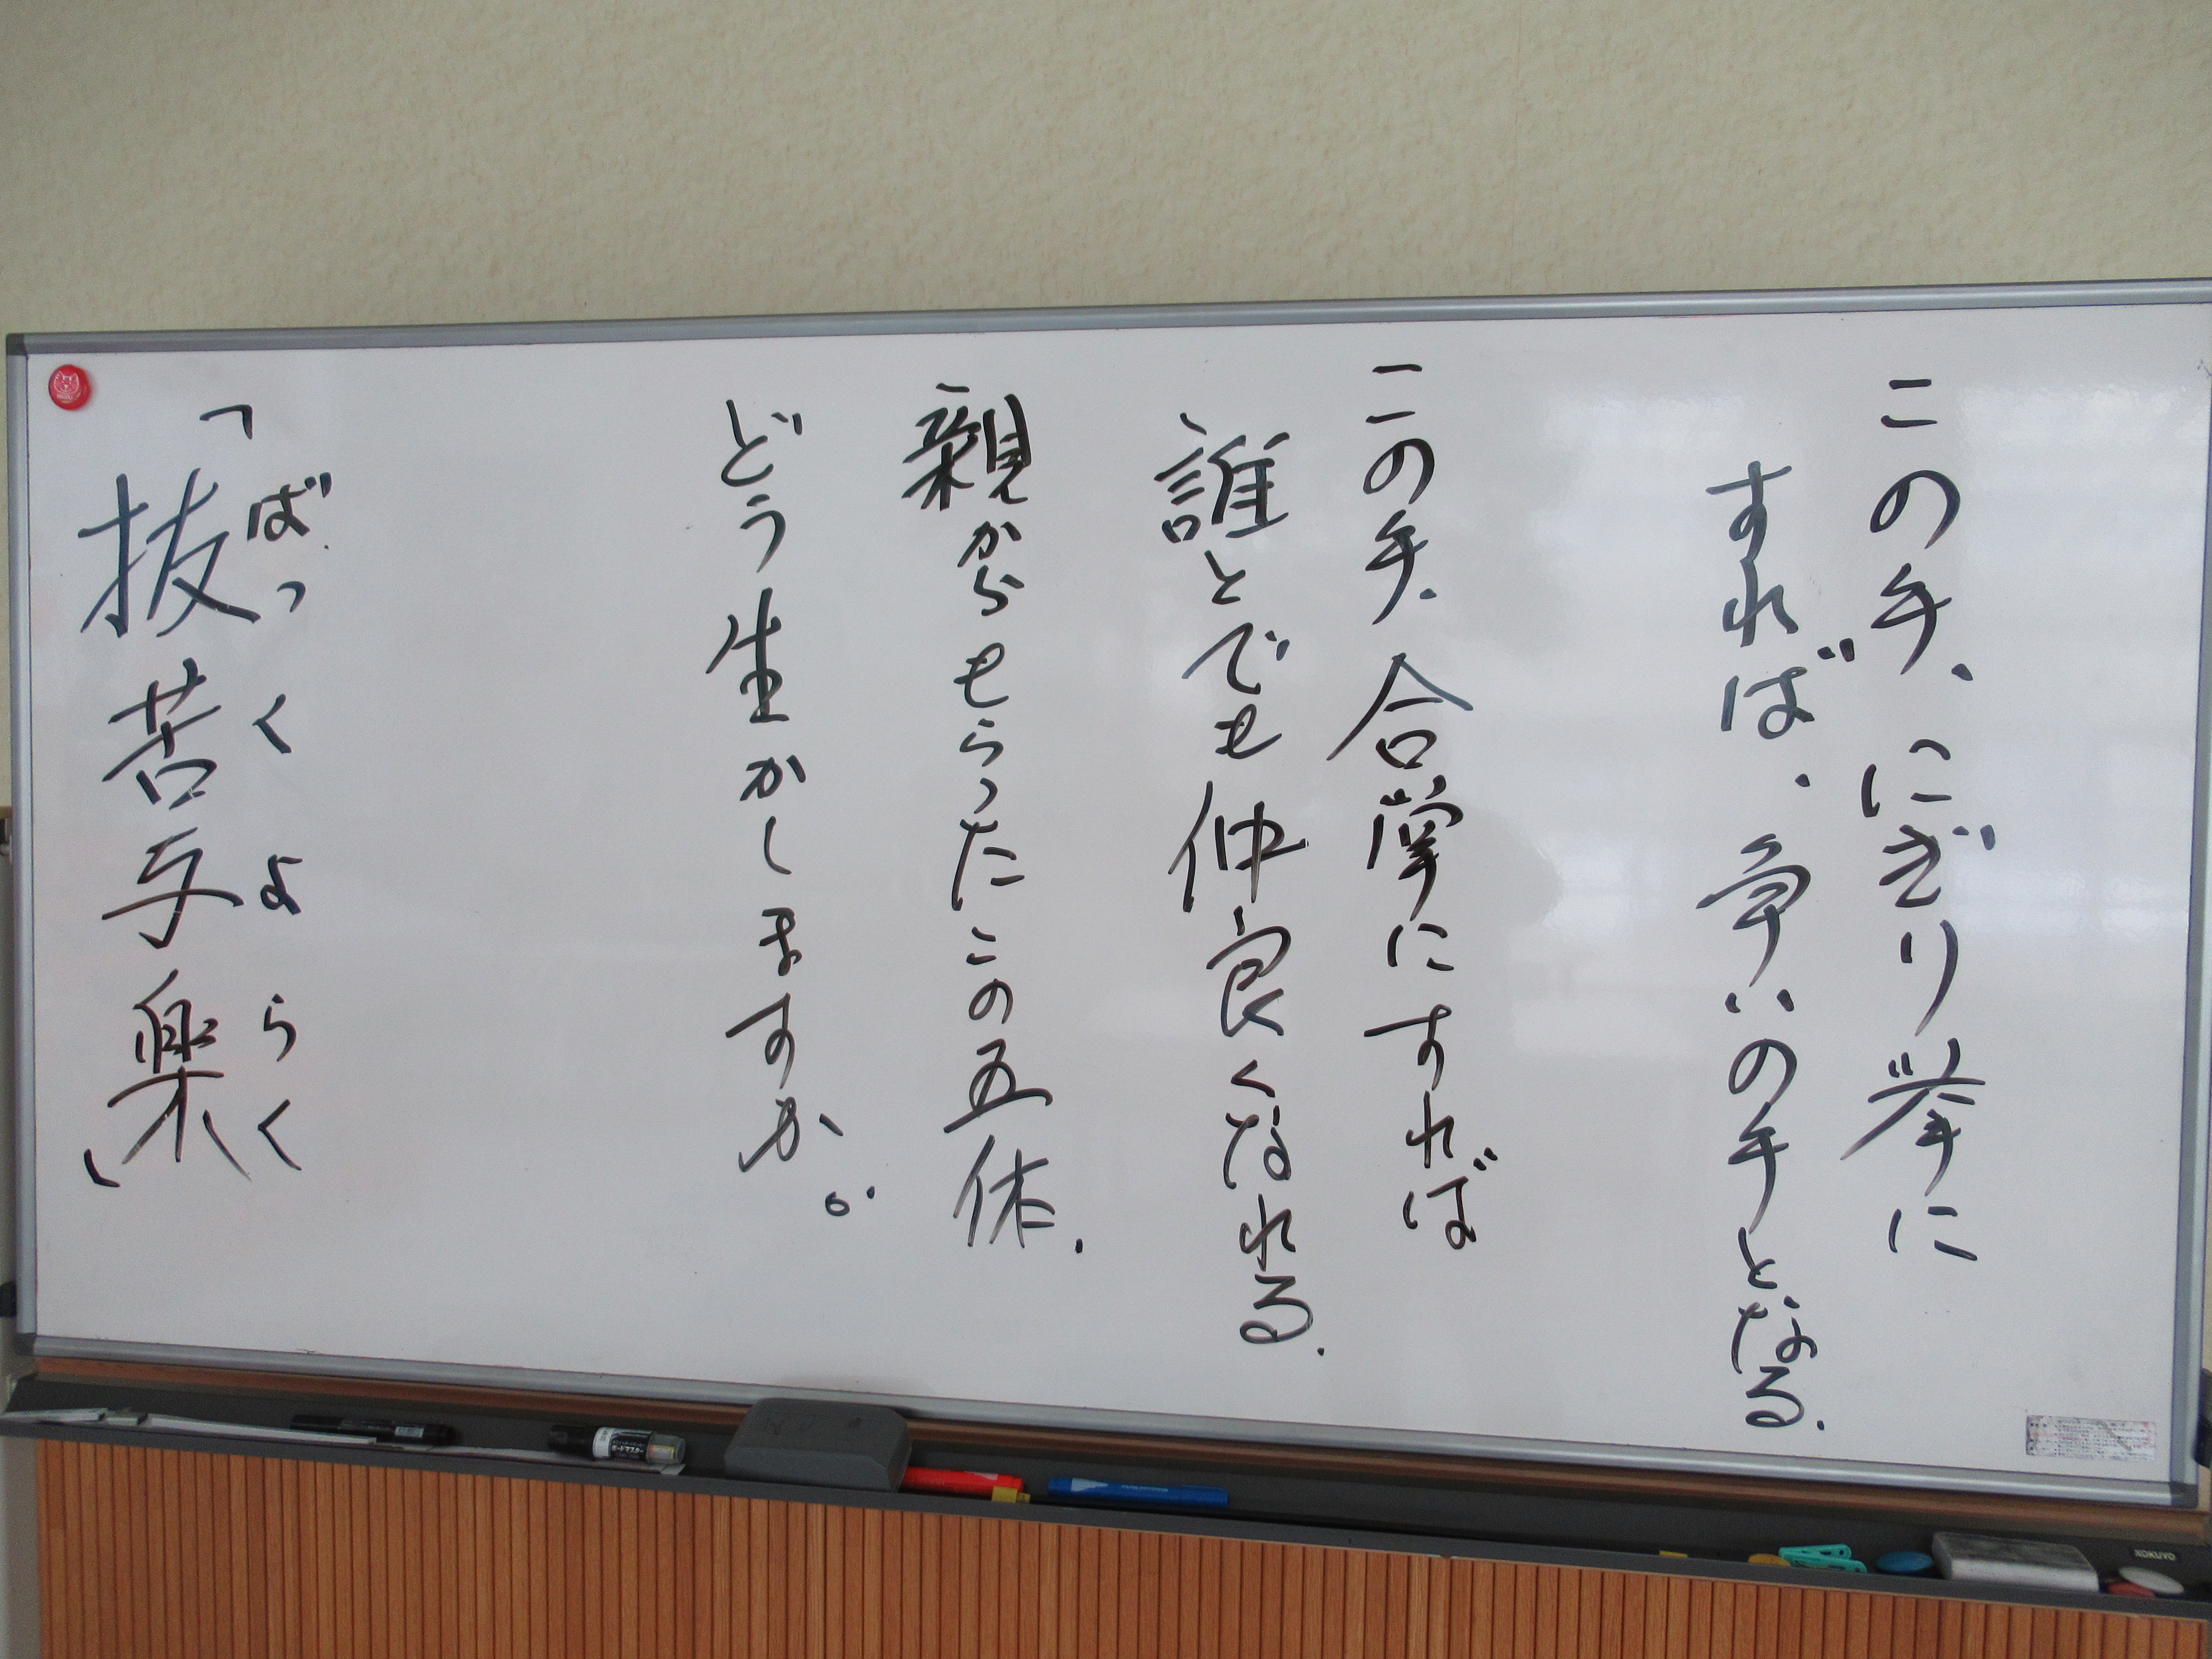 この手、にぎり拳に
すれば、争いの手となる.
この手、合掌にすれば
誰とでも仲良くなれる.
親からもらったこの五体.
どう生かしますか。
ばっくよらく
「抜苦与楽」
ボードマスター
KOKUYO